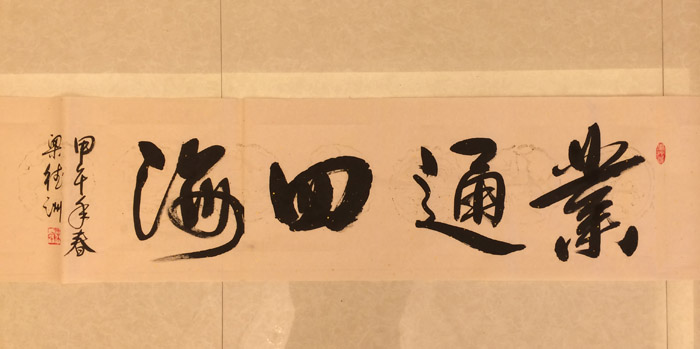 業通四海
甲午年春
梁洲